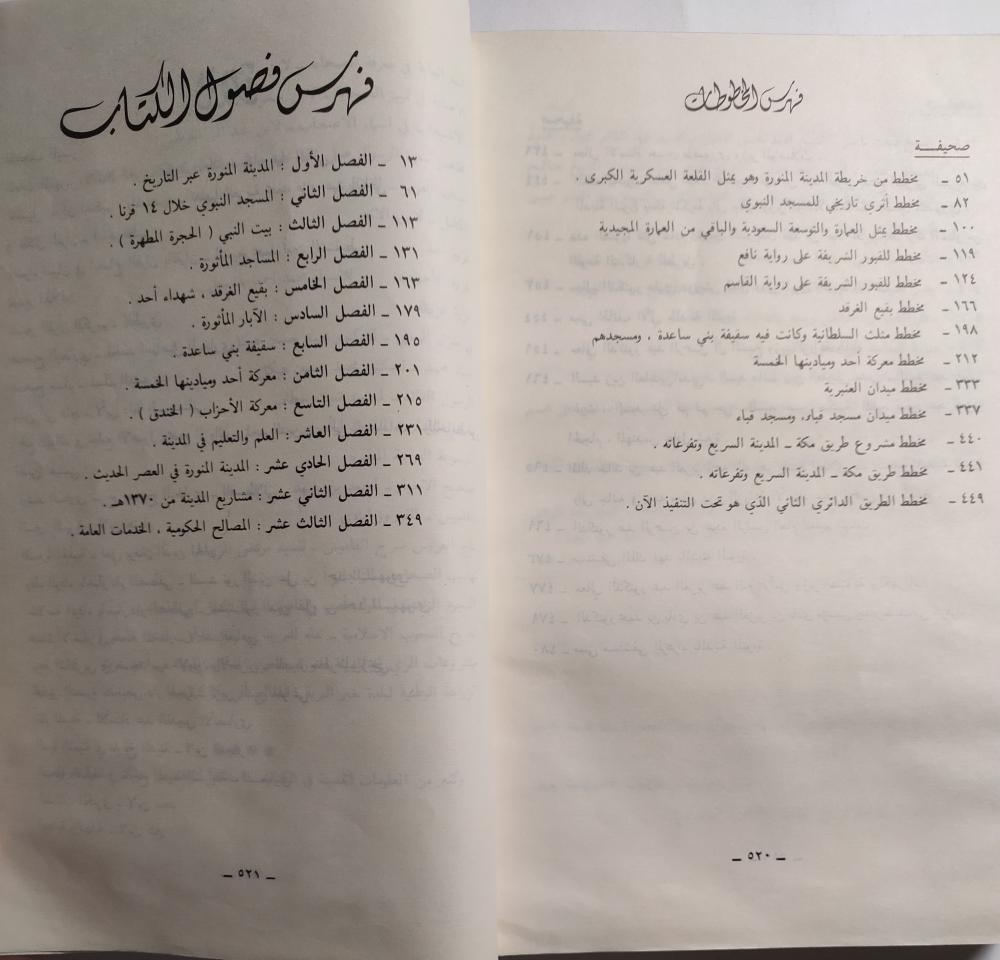 فهرس المخطوطات
صحيفة
٥١ ـ مخطط من خريطة المدينة المنورة وهو يمثل القلعة العسكرية الكبرى .
٨٢ ـ مخطط أثري تاريخي للمسجد النبوي
١٠٠ ـ مخطط يمثل العمارة والتوسعة السعودية والباقي من العمارة المجيدية
١١٩ ـ مخطط للقبور الشريفة على رواية نافع
١٢٤ ـ مخطط للقبور الشريفة على رواية القاسم
١٦٦ ـ مخطط بقيع الغرقد
١٩٨ ـ مخطط مثلث السلطانية وكانت فيه سقيفة بني ساعدة ، ومسجدهم
٢١٢ ـ مخطط معركة أحد وميادينها الخمسة
٣٣٣ ـ مخطط ميدان العنبرية
٣٣٧ ـ مخطط ميدان مسجد قباء، ومسجد قباء
٤٤٠ ـ مخطط مشروع طريق مكة ـ المدينة السريع وتفرعاته .
٤٤١ ـ مخطط طريق مكة ـ المدينة السريع وتفرعاته .
٤٤٩ ـ مخطط الطريق الدائري الثاني الذي هو تحت التنفيذ الآن .
ـ ٥٢٠ ـ
فهرس فصول الكتاب
١٣ ـ الفصل الأول : المدينة المنورة عبر التاريخ .
٦١ ـ الفصل الثاني : المسجد النبوي خلال ١٤ قرنا .
١١٣ ـ الفصل الثالث : بيت النبي ( الحجرة المطهرة ) .
١٣١ ـ الفصل الرابع : المساجد المأثورة .
١٦٣ ـ الفصل الخامس : بقيع الغرقد ، شهداء أحد .
١٧٩ ـ الفصل السادس : الآبار المأثورة .
١٩٥ ـ الفصل السابع : سقيفة بني ساعدة .
٢٠١ ـ الفصل الثامن : معركة أحد وميادينها الخمسة .
٢١٥ ـ الفصل التاسع : معركة الأحزاب ( الخندق ) .
٢٣١ ـ الفصل العاشر : العلم والتعليم في المدينة .
٢٦٩ ـ الفصل الحادي عشر : المدينة المنورة في العصر الحديث .
٣١١ ـ الفصل الثاني عشر : مشاريع المدينة من ١٣٧٠هـ .
٣٤٩ ـ الفصل الثالث عشر : المصالح الحكومية ، الخدمات العامة .
ـ ٥٢١ ـ